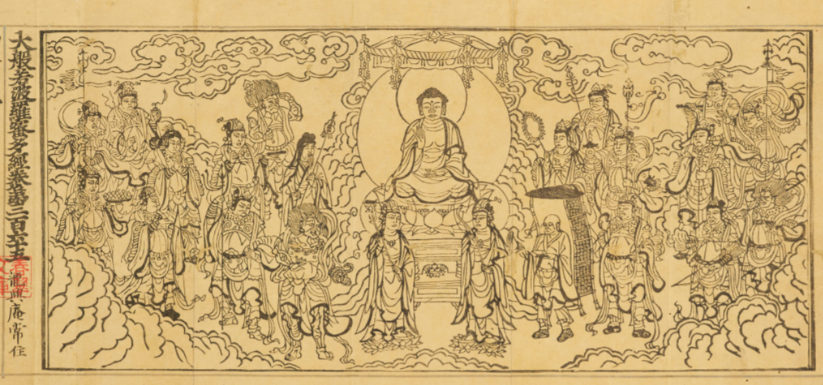 大般若波羅蜜多經卷第二百六十
庵常住